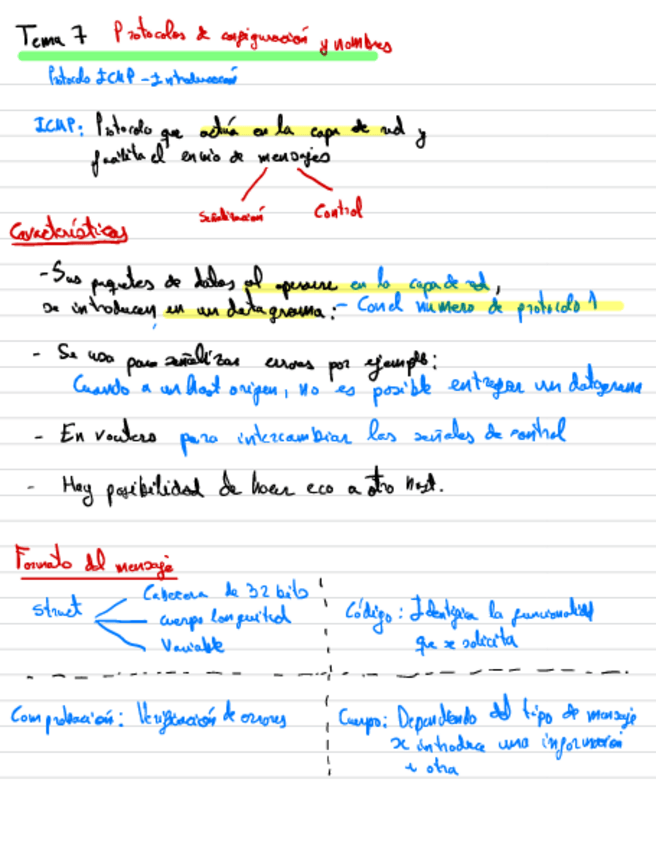 Tema 7 Protocolos de configuración y nombres
Protocolo ICMP - Introducción
ICMP: Protocolo que actúa en la capa de red y
facilita el envío de mensajes
Señalización Control
Características
- Sus paquetes de datos al operarse en la capa de red,
se introducen en un datagrama: - Con el numero de protocolo 1
- Se usa para señalizar errores por ejemplo:
Cuando a un host origen, no es posible entregar un datagrama
- En routers para intercambiar las señales de control
- Hay posibilidad de hacer eco a otro host.
Formato del mensaje
struct
Cabecera de 32 bits
cuerpo longuitud
Variable
Código: Identifica la funcionalidad
que se solicita
Comprobación: Verificación de errores
Cuerpo: Dependiendo del tipo de mensaje
se introduce una información
u otra